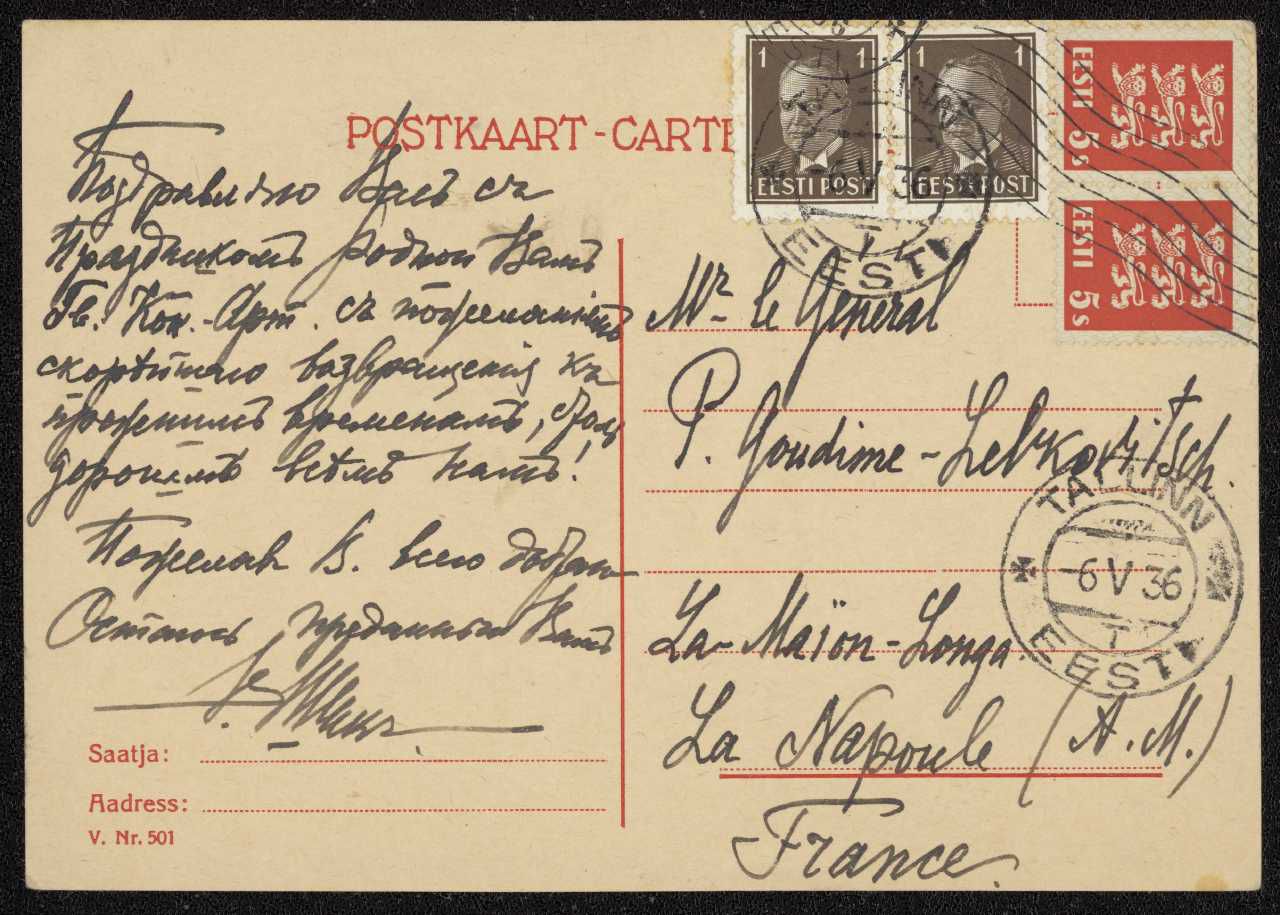 POSTKAART-CARTE
1 EESTI POST
1 EESTI POST
EESTI 5s
EESTI 5s
TALLINN
-6 V 36
EESTI
Поздравляю Васъ съ
Праздникомъ родной Вамъ
Гв. Кон.-Арт. съ пожеланіемъ
скорѣйшаго возвращенія къ
прожитымъ временамъ, столь
дорогимъ всѣмъ намъ!
Пожелавъ В. всего
Остаюсь преданный Вамъ
Saatja:
Aadress:
V. Nr. 501
Mr le Général
P. Goudime-Levkovitsch.
La-Maïon-Longa
La Napoule (A.M.)
France.
TALLINN
-6 V 36
EESTI